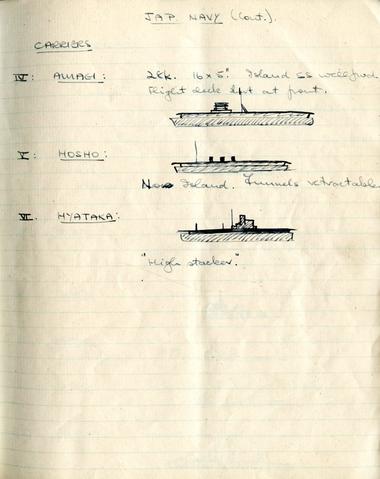 JAP. NAVY (Cont.).
CARRIERS
IV: AMAGI: 28k. 16 x 5". Island SS well fwd.
Flight deck but at front.
V: HOSHO:
No Island. Funnels retractable
VI. HYATAKA:
"High stacker".